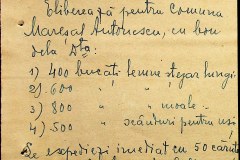 Eliberează pentru comuna
Mareșal Antonescu, cu bon
dela Dta:
1) 400 bucăți lemne stejar lungi
2) 600 " "
3) 800 " " moale
4) 500 " scânduri pentru uși
Se expediezi imediat cu 50 căruțe